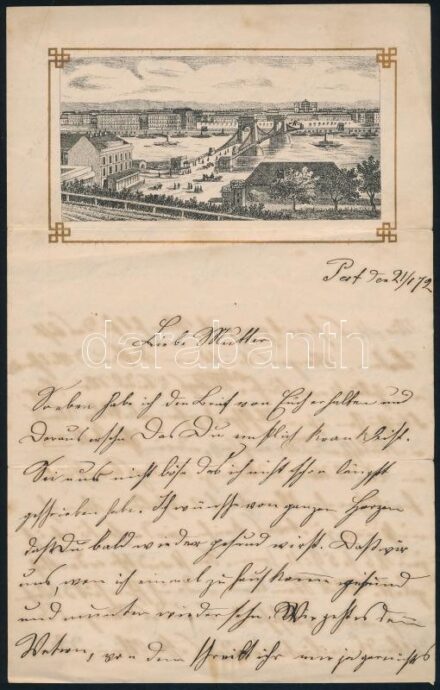 Pest den 21/1 872
Liebe Mutter
darabanth
Soeben habe ich den Brief von Euch erhalten und
daraus ersehn das Du ernstlich krank bist.
Sei uns nicht böse das ich nicht schon längst
geschrieben habe. Ich wünsche von ganzen Herzen
daß Du bald wieder gesund wirst. Daß wir
uns, wen ich einmal zu Haus komme gesund
und munter wieder sehn. Wie geht es den
Vatern, von dem schreibt ihr mir ja gar nichts